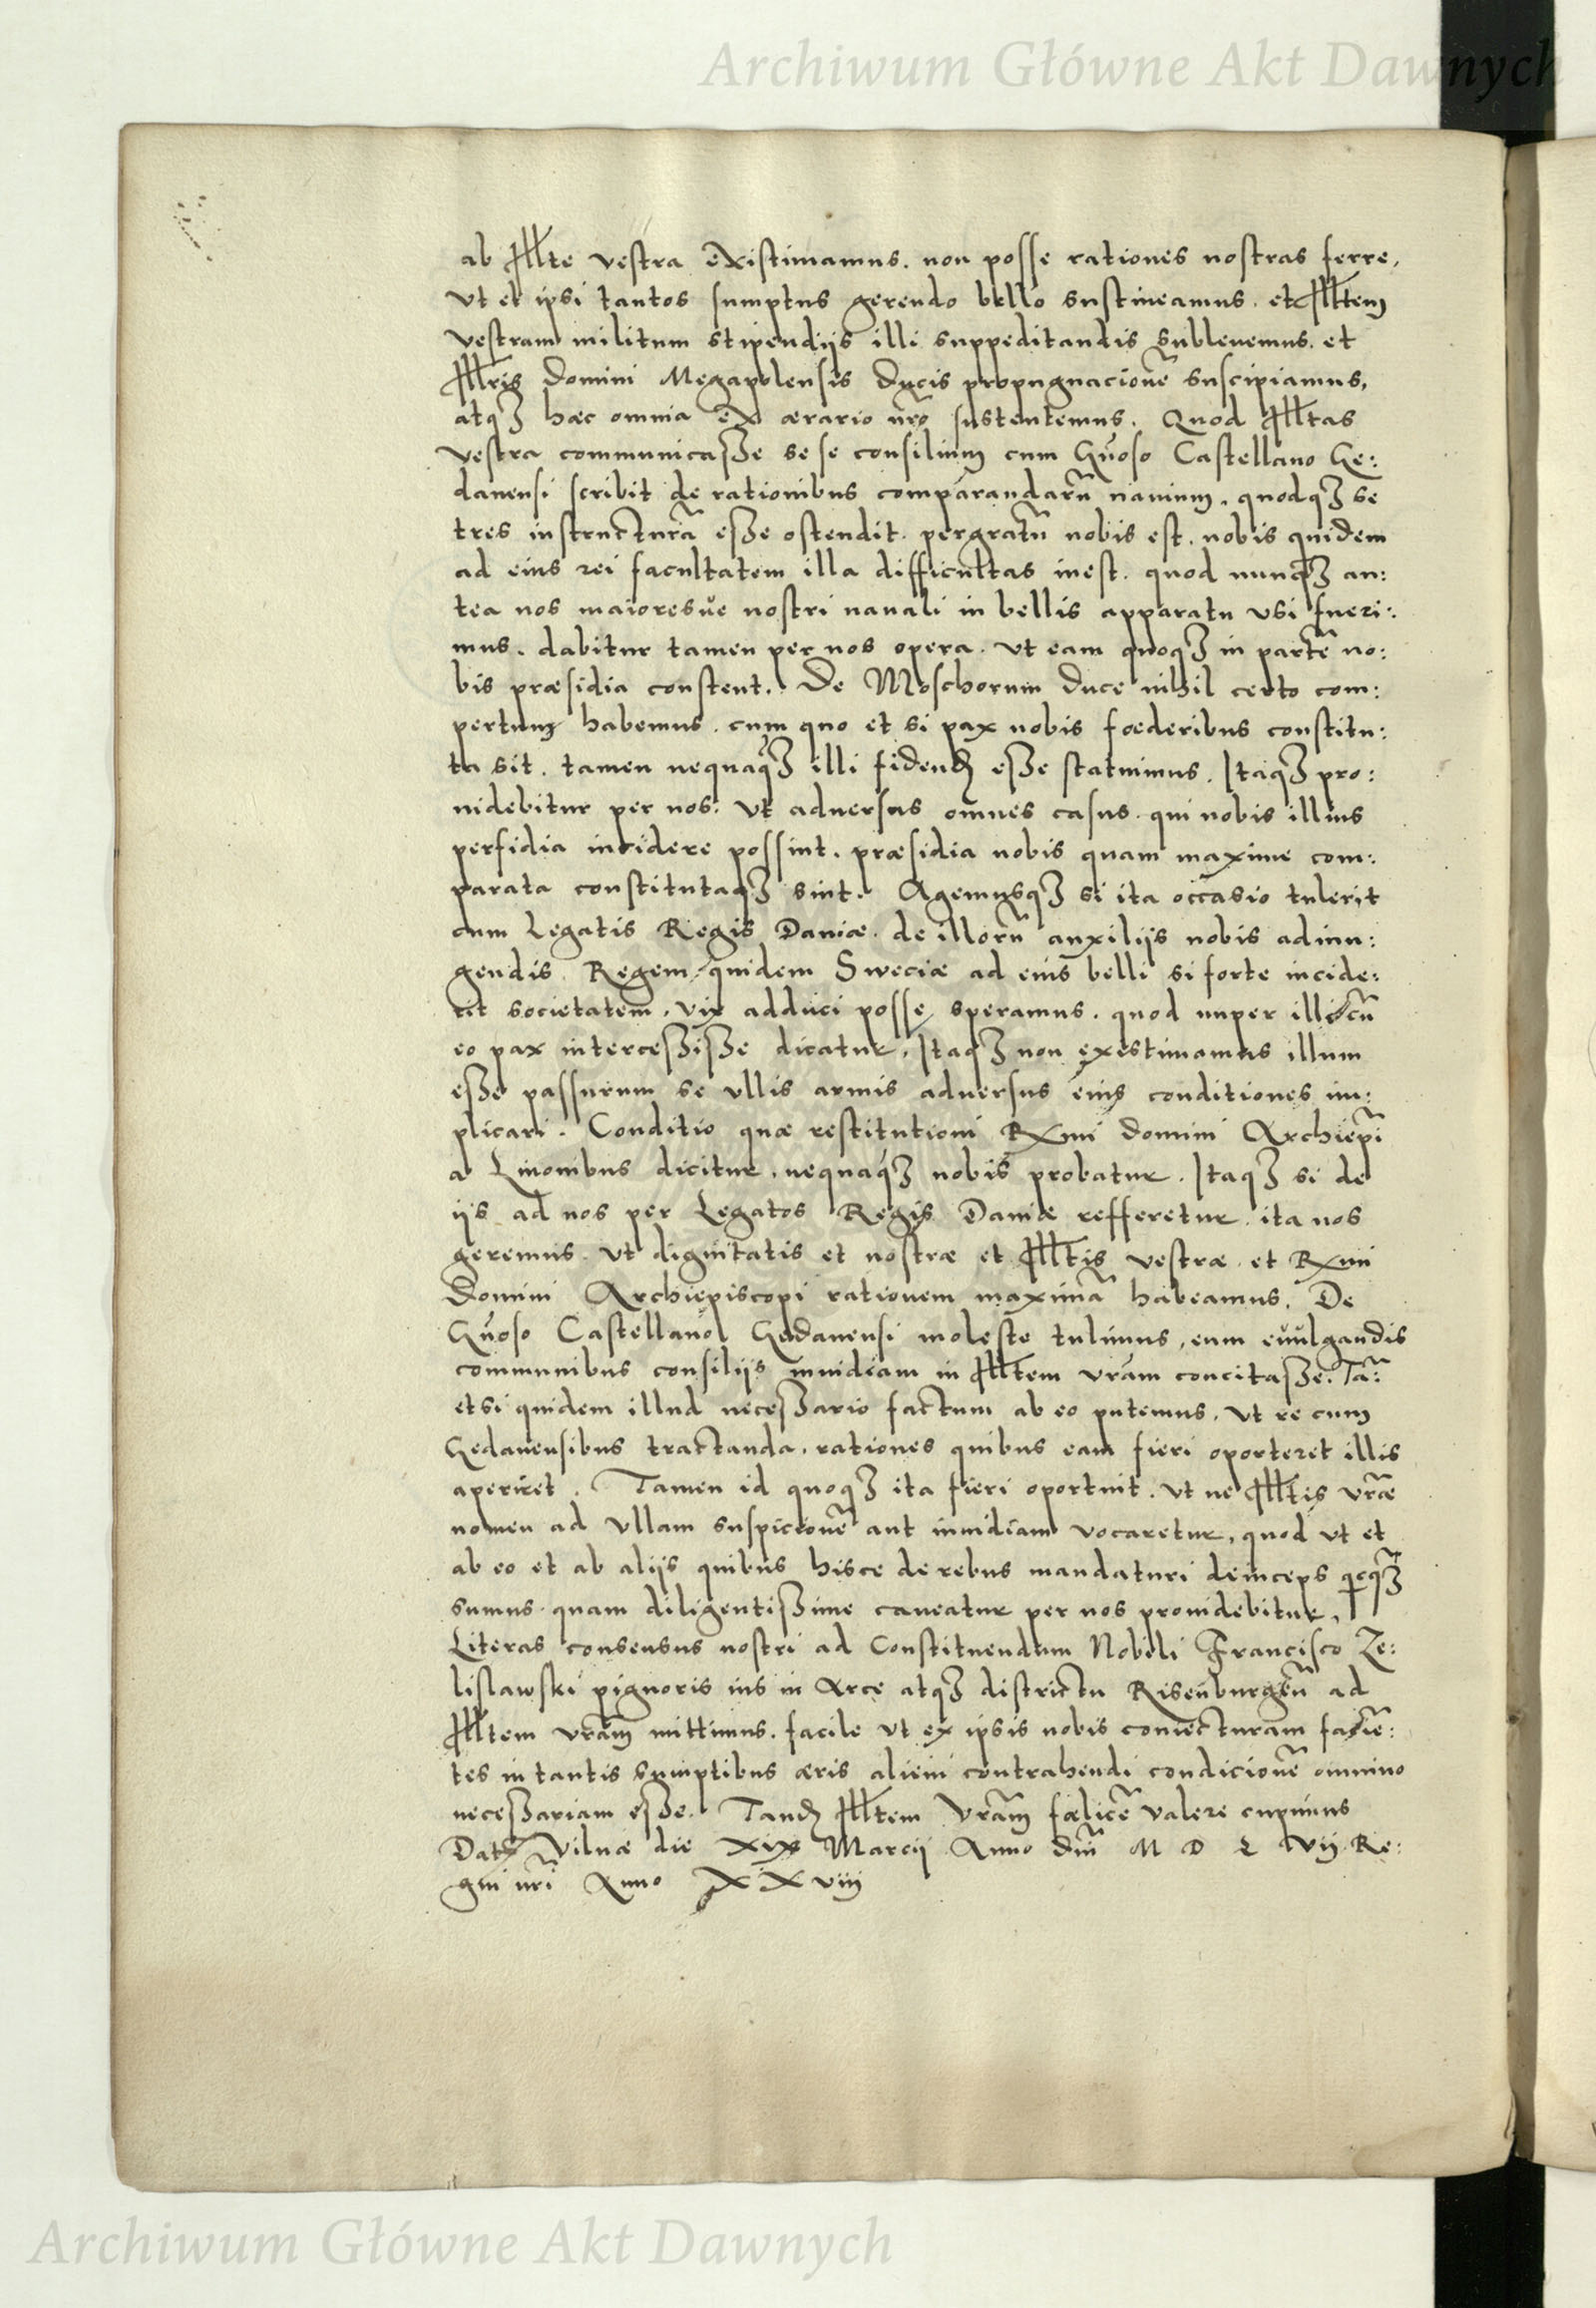 Archiwum Główne Akt Dawnych
ab Illte vestra existimamus. non posse rationes nostras ferre,
vt et ipsi tantos sumptus gerendo bello sustineamus. et Illtem
vestram militum stipendijs illi suppeditandis subleuemus. et
Illris domini Megapolensis ducis propugnacionē suscipiamus,
atqꝫ hæc omnia ex ærario nr̃o sustentemus. Quod Illtas
vestra communicasse se se consilium cum Gn̄oso Castellano Ge:
danensi scribit de rationibus comparandarū nauium. quodqꝫ se
tres instructurā esse ostendit. pergratū nobis est. nobis quidem
ad eius rei facultatem illa difficultas inest. quod nunqꝫ an:
tea nos maioresue nostri nauali in bellis apparatu vsi fueri:
mus. dabitur tamen per nos opera. vt eam quoqꝫ in partē no:
bis præsidia constent. De Moschorum duce nihil certo com:
pertum habemus. cum quo et si pax nobis fœderibus constitu:
ta sit. tamen nequaqꝫ illi fidendū esse statuimus. Itaqꝫ pro:
uidebitur per nos: vt aduersus omnes casus. qui nobis illius
perfidia incidere possint. præsidia nobis quam maxime com:
parata constitutaqꝫ sint. Agemusqꝫ si ita occasio tulerit
cum Legatis Regis Daniæ. de illorū auxilijs nobis adiun:
gendis. Regem quidem Sweciæ ad eius belli si forte incide:
rit societatem. vix adduci posse speramus. quod nuper illi cū
eo pax intercessisse dicatur. Itaqꝫ non existimamus illum
esse passurum se vllis armis aduersus eius conditiones im:
plicari. Conditio quæ restitutioni Rxmi domini Archiepī
a Liuonibus dicitur. nequaqꝫ nobis probatur. Itaqꝫ si de
ijs ad nos per Legatos Regis Daniæ refferetur. ita nos
geremus. vt dignitatis et nostræ et Illtis vestræ. et Rxmi
domini Archiepiscopi rationem maximā habeamus. De
Gn̄oso Castellano Gedanensi moleste tulimus, eum euulgandis
communibus consilijs inuidiam in Illtem vr̃am concitasse. Tā:
etsi quidem illud necessario factum ab eo putemus. vt re cum
Gedanensibus tractanda. rationes quibus eam fieri oporteret illis
aperiret. Tamen id quoqꝫ ita fieri oportuit. vt ne Illtis vr̃æ
nomen ad vllam suspicionē aut inuidiam vocaretur, quod vt et
ab eo et ab alijs quibus hisce de rebus mandaturi deinceps qcqꝫ
sumus. quam diligentissime caueatur per nos prouidebitur.
Literas consensus nostri ad Constituendum Nobili Francisco Ze:
lislawski pignoris ius in Arce atqꝫ districtu Risenburgeñ ad
Illtem vr̃am mittimus. facile vt ex ipsis nobis coniecturam faciē:
tes in tantis sumptibus æris alieni contrahendi condicionē omnino
necessariam esse. Tandē Illtem vr̃am fœlicē valere cupimus
Dat Vilnæ die xix Marcij Anno dnī M D L vij Re:
gni nr̃i Anno XXviij
Archiwum Główne Akt Dawnych